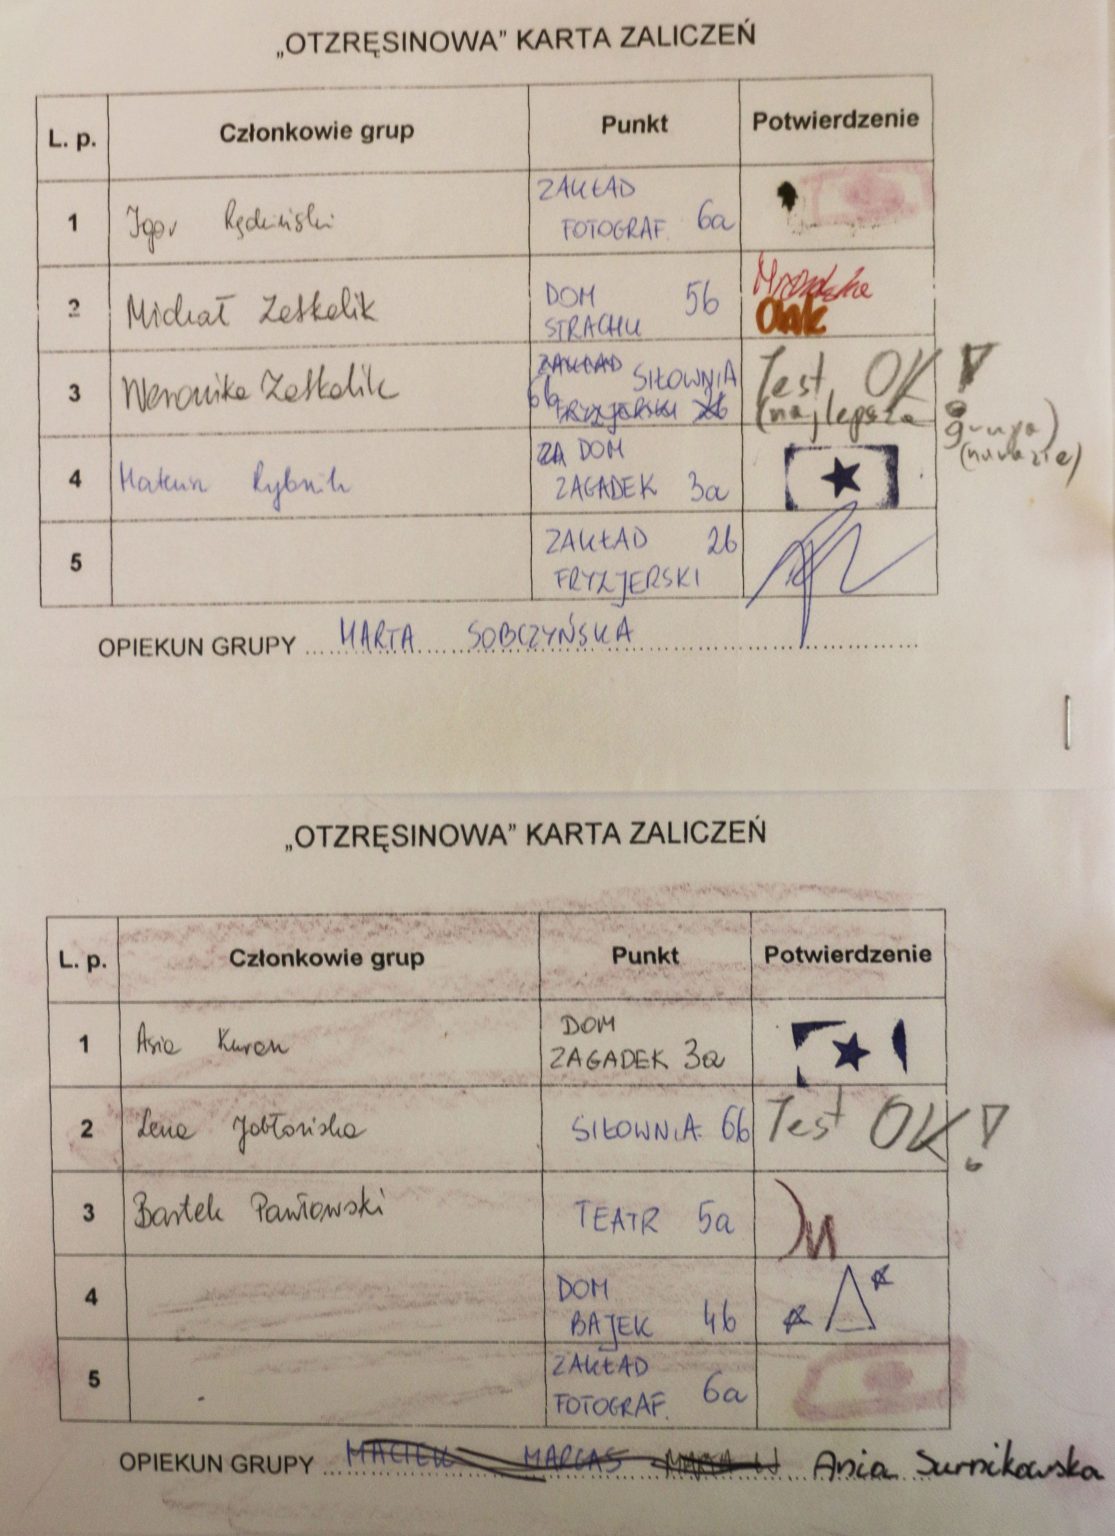 „OTZRĘSINOWA” KARTA ZALICZEŃ
L. p. Członkowie grup Punkt Potwierdzenie
1 Igor ZAKŁAD
FOTOGRAF. 6a
2 Michał Zeskalik DOM 5b
STRACHU
3 Weronika Zeskalik ZAKŁAD SIŁOWNIA Test OK!
6b FRYZJERSKI 2b (najlepsza grupa)
(narazie)
4 Mateusz Rybnik ZA DOM
ZAGADEK 3a
5 ZAKŁAD 2b
FRYZJERSKI
OPIEKUN GRUPY MARTA SOBCZYŃSKA
„OTZRĘSINOWA” KARTA ZALICZEŃ
L. p. Członkowie grup Punkt Potwierdzenie
1 Asia Kuran DOM
ZAGADEK 3a
2 Lena Jabłońska SIŁOWNIA 6b Test OK!
3 Bartek Pawłowski TEATR 5a
4 DOM
BAJEK 4b
5 ZAKŁAD
FOTOGRAF. 6a
OPIEKUN GRUPY MACIEK MARCAS Ania Surnikowska